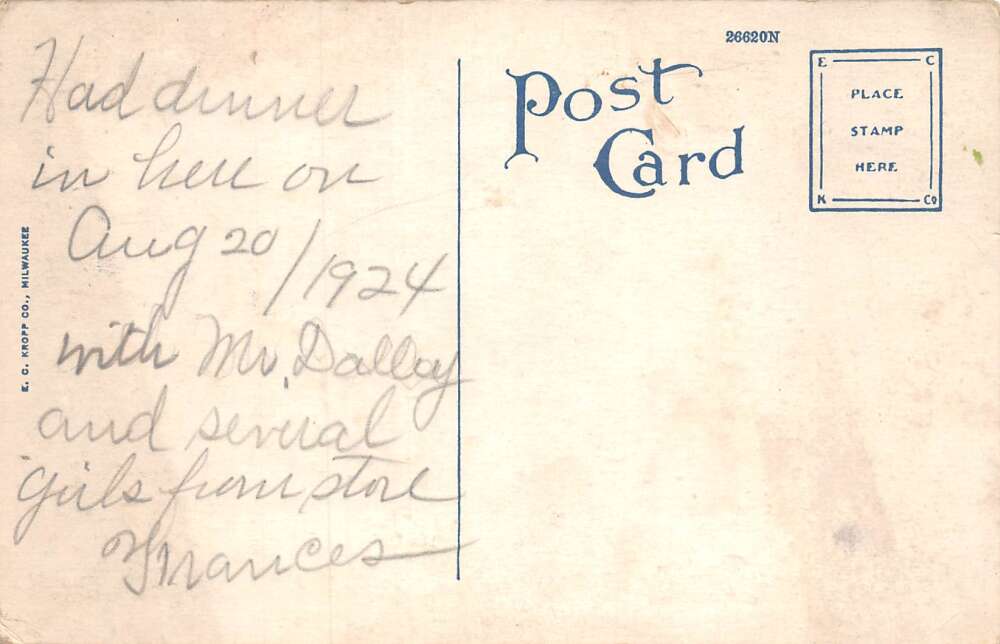 Had dinner
in here on
Aug 20/1924
with Mr.
and several
girls from store
Frances
E. C. KROPP CO., MILWAUKEE
26620N
Post
Card
E C
PLACE
STAMP
HERE
K Co